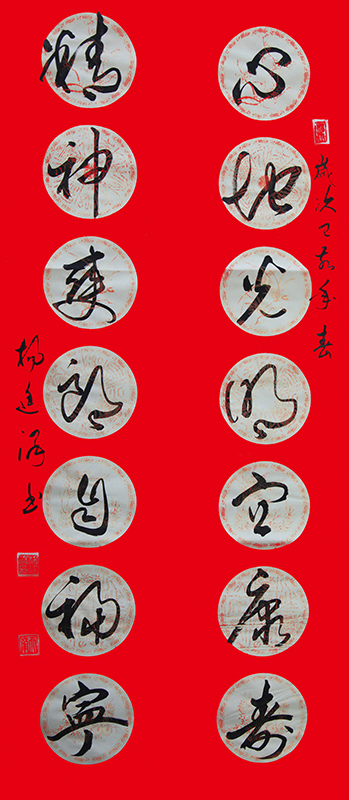 岁次己亥年春
心地光明宜康寿
精神爽朗自福宁
杨廷泽书